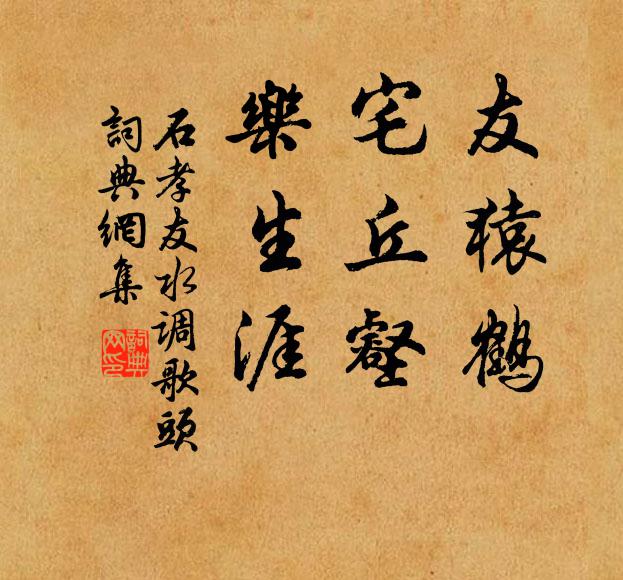 友猿鶴
宅丘壑
樂生涯
石孝友水调歌頭
詞典網集
詞典網印